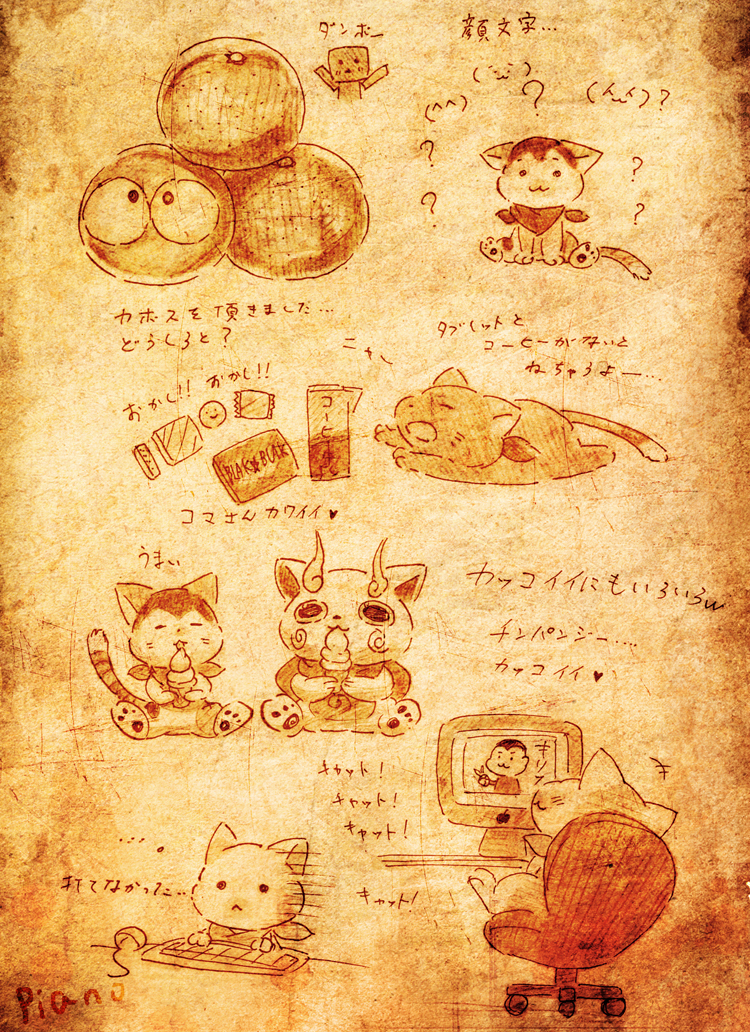 ダンボー
顔文字...
(^^)
?
?
?
?
?
カボスを頂きました...
どうしろと?
タブレットと
コーヒーがないと
ねちゃうよー...
ニャ〜
おかし!! おかし!!
コーヒー
BLAK BLAK
コマさんカワイイ♥
うまい
カッコイイにもいろいろw
チンパンジー....
カッコイイ♥
キャット!
キャット!
キャット!
キャット!
キリッ
打てなかった...
Piano